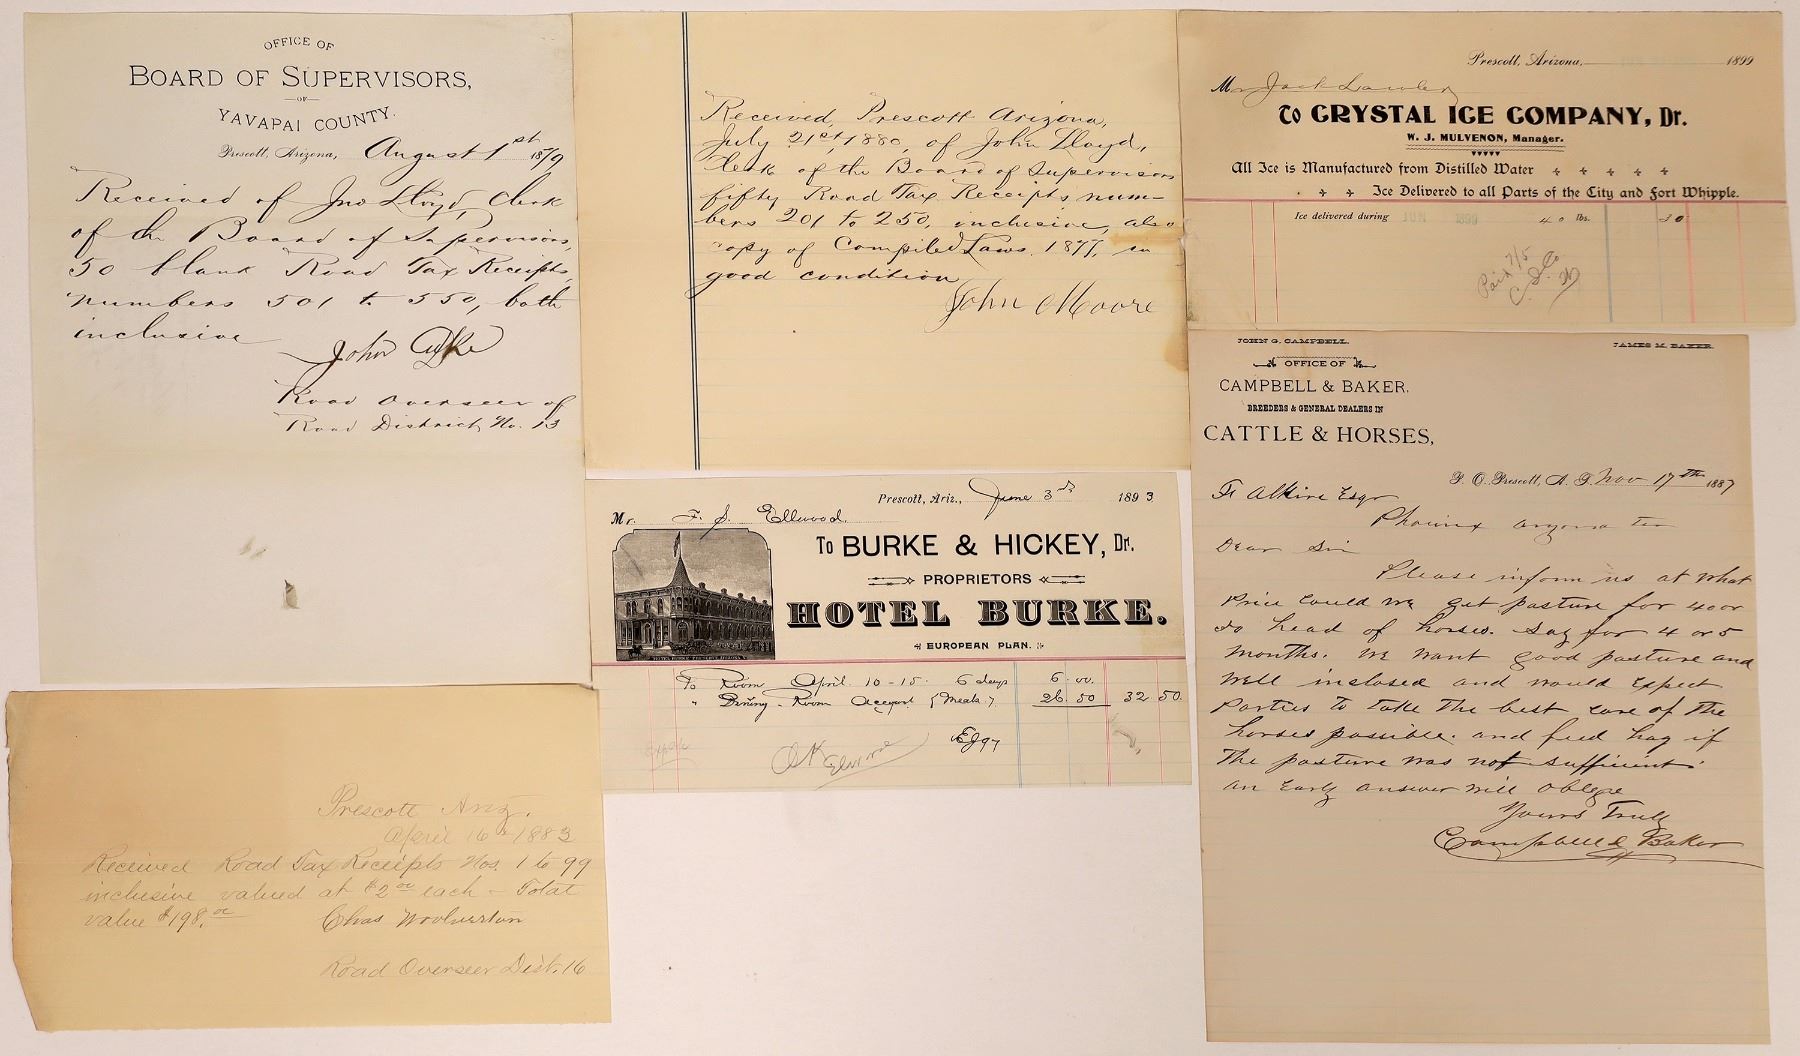 OFFICE OF
BOARD OF SUPERVISORS,
OF
YAVAPAI COUNTY.
Prescott, Arizona, August 1st 1879
Received of Jno Lloyd, Clerk
of the Board of Supervisors,
50 blank Road Tax Receipts
numbers 501 to 550, both
inclusive
John
Road Overseer of
Road District No. 13
Received, Prescott Arizona,
July 21st, 1880, of John Lloyd,
Clerk of the Board of Supervisors
fifty Road Tax Receipts num-
bers 201 to 250, inclusive, also
copy of Compiled Laws 1877, in
good condition
John Moore
Prescott, Arizona, 1899
Mr Jack Lawler
To CRYSTAL ICE COMPANY, Dr.
W. J. MULVENON, Manager.
All Ice is Manufactured from Distilled Water
Ice Delivered to all Parts of the City and Fort Whipple.
Ice delivered during JUN 1899 40 lbs. 30
Paid 7/5
C. I. Co
Prescott, Ariz., June 3rd 1893
Mr. F. S. Ellwood.
To BURKE & HICKEY, Dr.
PROPRIETORS
HOTEL BURKE.
EUROPEAN PLAN.
To Room April 10-15. 6 days 6.00
" Dining-Room Account Meals 26.50 32 50
OK
JOHN G. CAMPBELL. JAMES M. BAKER.
OFFICE OF
CAMPBELL & BAKER,
BREEDERS & GENERAL DEALERS IN
CATTLE & HORSES,
P. O. Prescott, A. T. Nov 17th 1887
F Alkire Esqr
Phoenix Arizona Ter
Dear Sir
Please inform us at what
Price could we get pasture for 40 or
50 head of horses. Say for 4 or 5
months. We want good pasture and
well inclosed and would expect
Parties to take the best care of the
horses possible. and feed hay if
the pasture was not sufficient.
an Early answer will oblige
Yours Truly
Campbell & Baker
Prescott Ariz.
April 16th 1883
Received Road Tax Receipts Nos. 1 to 99
inclusive valued at $2.00 each - Total
value $198.00 Chas Woolverton
Road Overseer Dist. 16